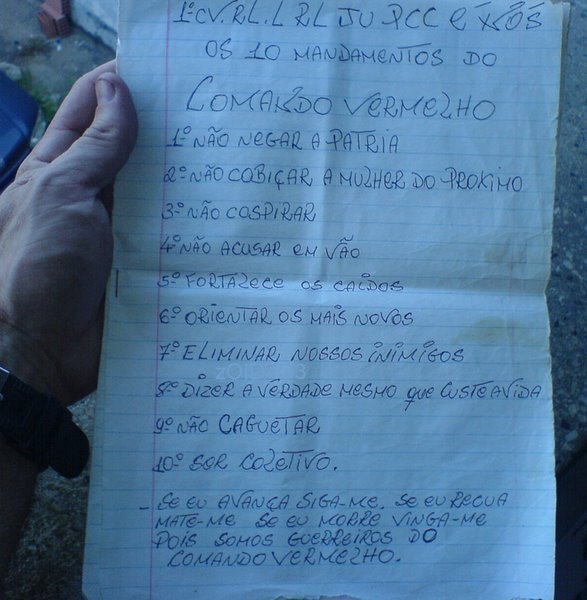 1º CV. RL. L RL JU PCC É NÓS
OS 10 MANDAMENTOS DO
COMANDO VERMELHO
1º NÃO NEGAR A PATRIA
2º NÃO COBIÇAR A MULHER DO PROXIMO
3º NÃO COSPIRAR
4º NÃO ACUSAR EM VÃO
5º FORTALECE OS CAIDOS
6º ORIENTAR OS MAIS NOVOS
7º ELIMINAR NOSSOS INIMIGOS
8º DIZER A VERDADE MESMO QUE CUSTE A VIDA
9º NÃO CAGUETAR
10º SER COLETIVO.
- SE EU AVANÇA SIGA-ME. SE EU RECUA
MATE-ME SE EU MORRE VINGA-ME
POIS SOMOS GUERREIROS DO
COMANDO VERMELHO.